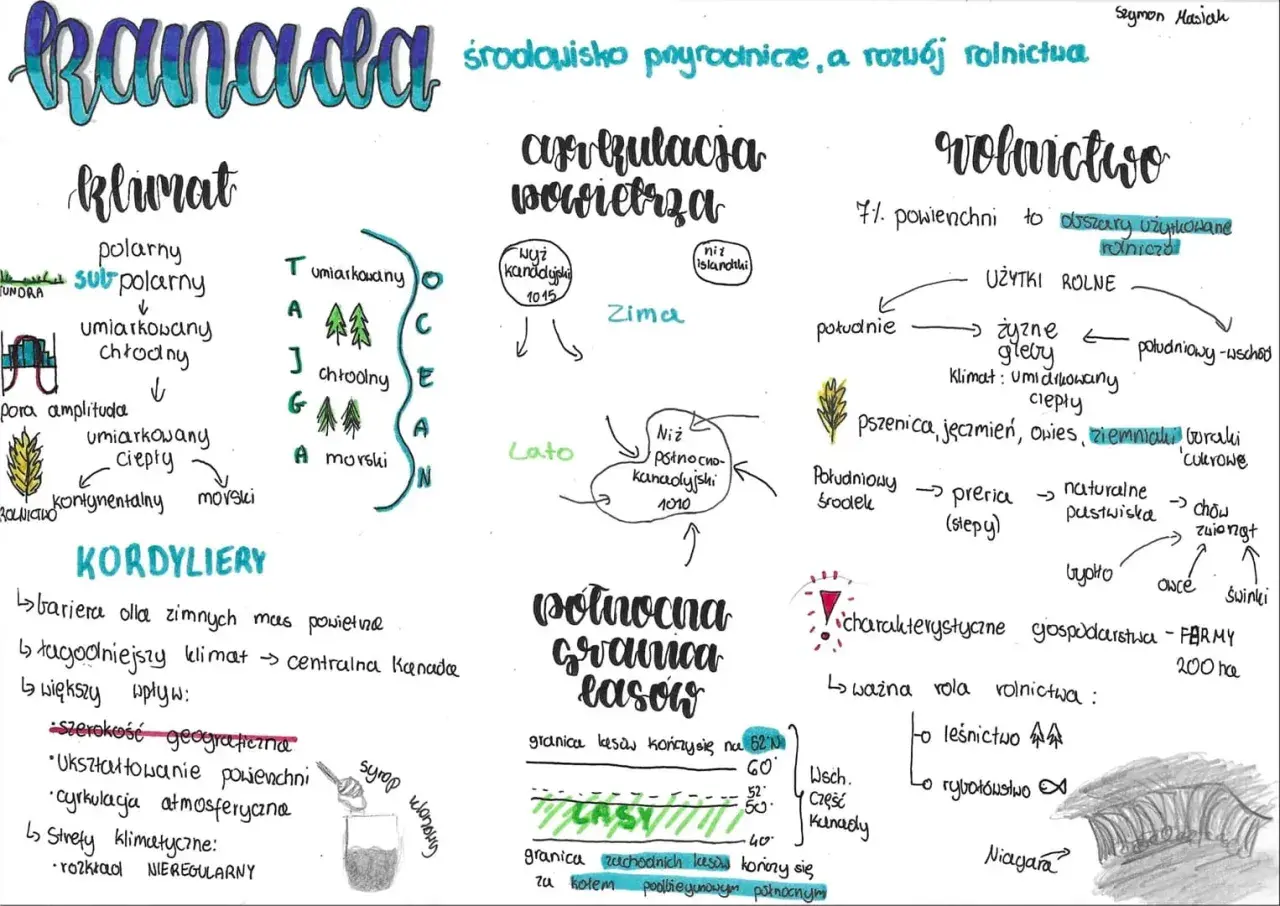 Szymon Masiak
kanada
środowisko przyrodnicze, a rozwój rolnictwa
klimat
polarny
subpolarny
TUNDRA
umiarkowany
chłodny
pora amplituda
umiarkowany
ciepły
kontynentalny
morski
ROLNICTWO
TAJGA
umiarkowany
chłodny
morski
OCEAN
KORDYLIERY
↳ bariera dla zimnych mas powietrza
↳ łagodniejszy klimat → centralna Kanada
↳ większy wpływ:
• szerokość geograficzna
• Ukształtowanie powierzchni
• cyrkulacja atmosferyczna
↳ Strefy klimatyczne:
• rozkład NIEREGULARNY
syrop klonowy
cyrkulacja
powietrza
wyż
kanadyjski
1015
niż
islandzki
Zima
Lato
Niż
północno-
kanadyjski
1010
północna
granica
lasów
granica lasów kończy się na 52°N
60°
52°
50°
LASY
40°
Wsch.
część
Kanady
granica zachodnich lasów kończy się
za kołem podbiegunowym północnym
rolnictwo
7% powierzchni to obszary użytkowane
rolniczo
UŻYTKI ROLNE
południe → żyzne
gleby
← południowy-wschód
klimat: umiarkowany
ciepły
pszenica, jęczmień, owies, ziemniaki, buraki
cukrowe
Południowy
środek
→ preria
(stepy)
→ naturalne
pastwiska
→ chów
zwierząt
bydło
owce
świnki
charakterystyczne gospodarstwa - FARMY
200 ha
↳ ważna rola rolnictwa:
leśnictwo
rybołówstwo
Niagara